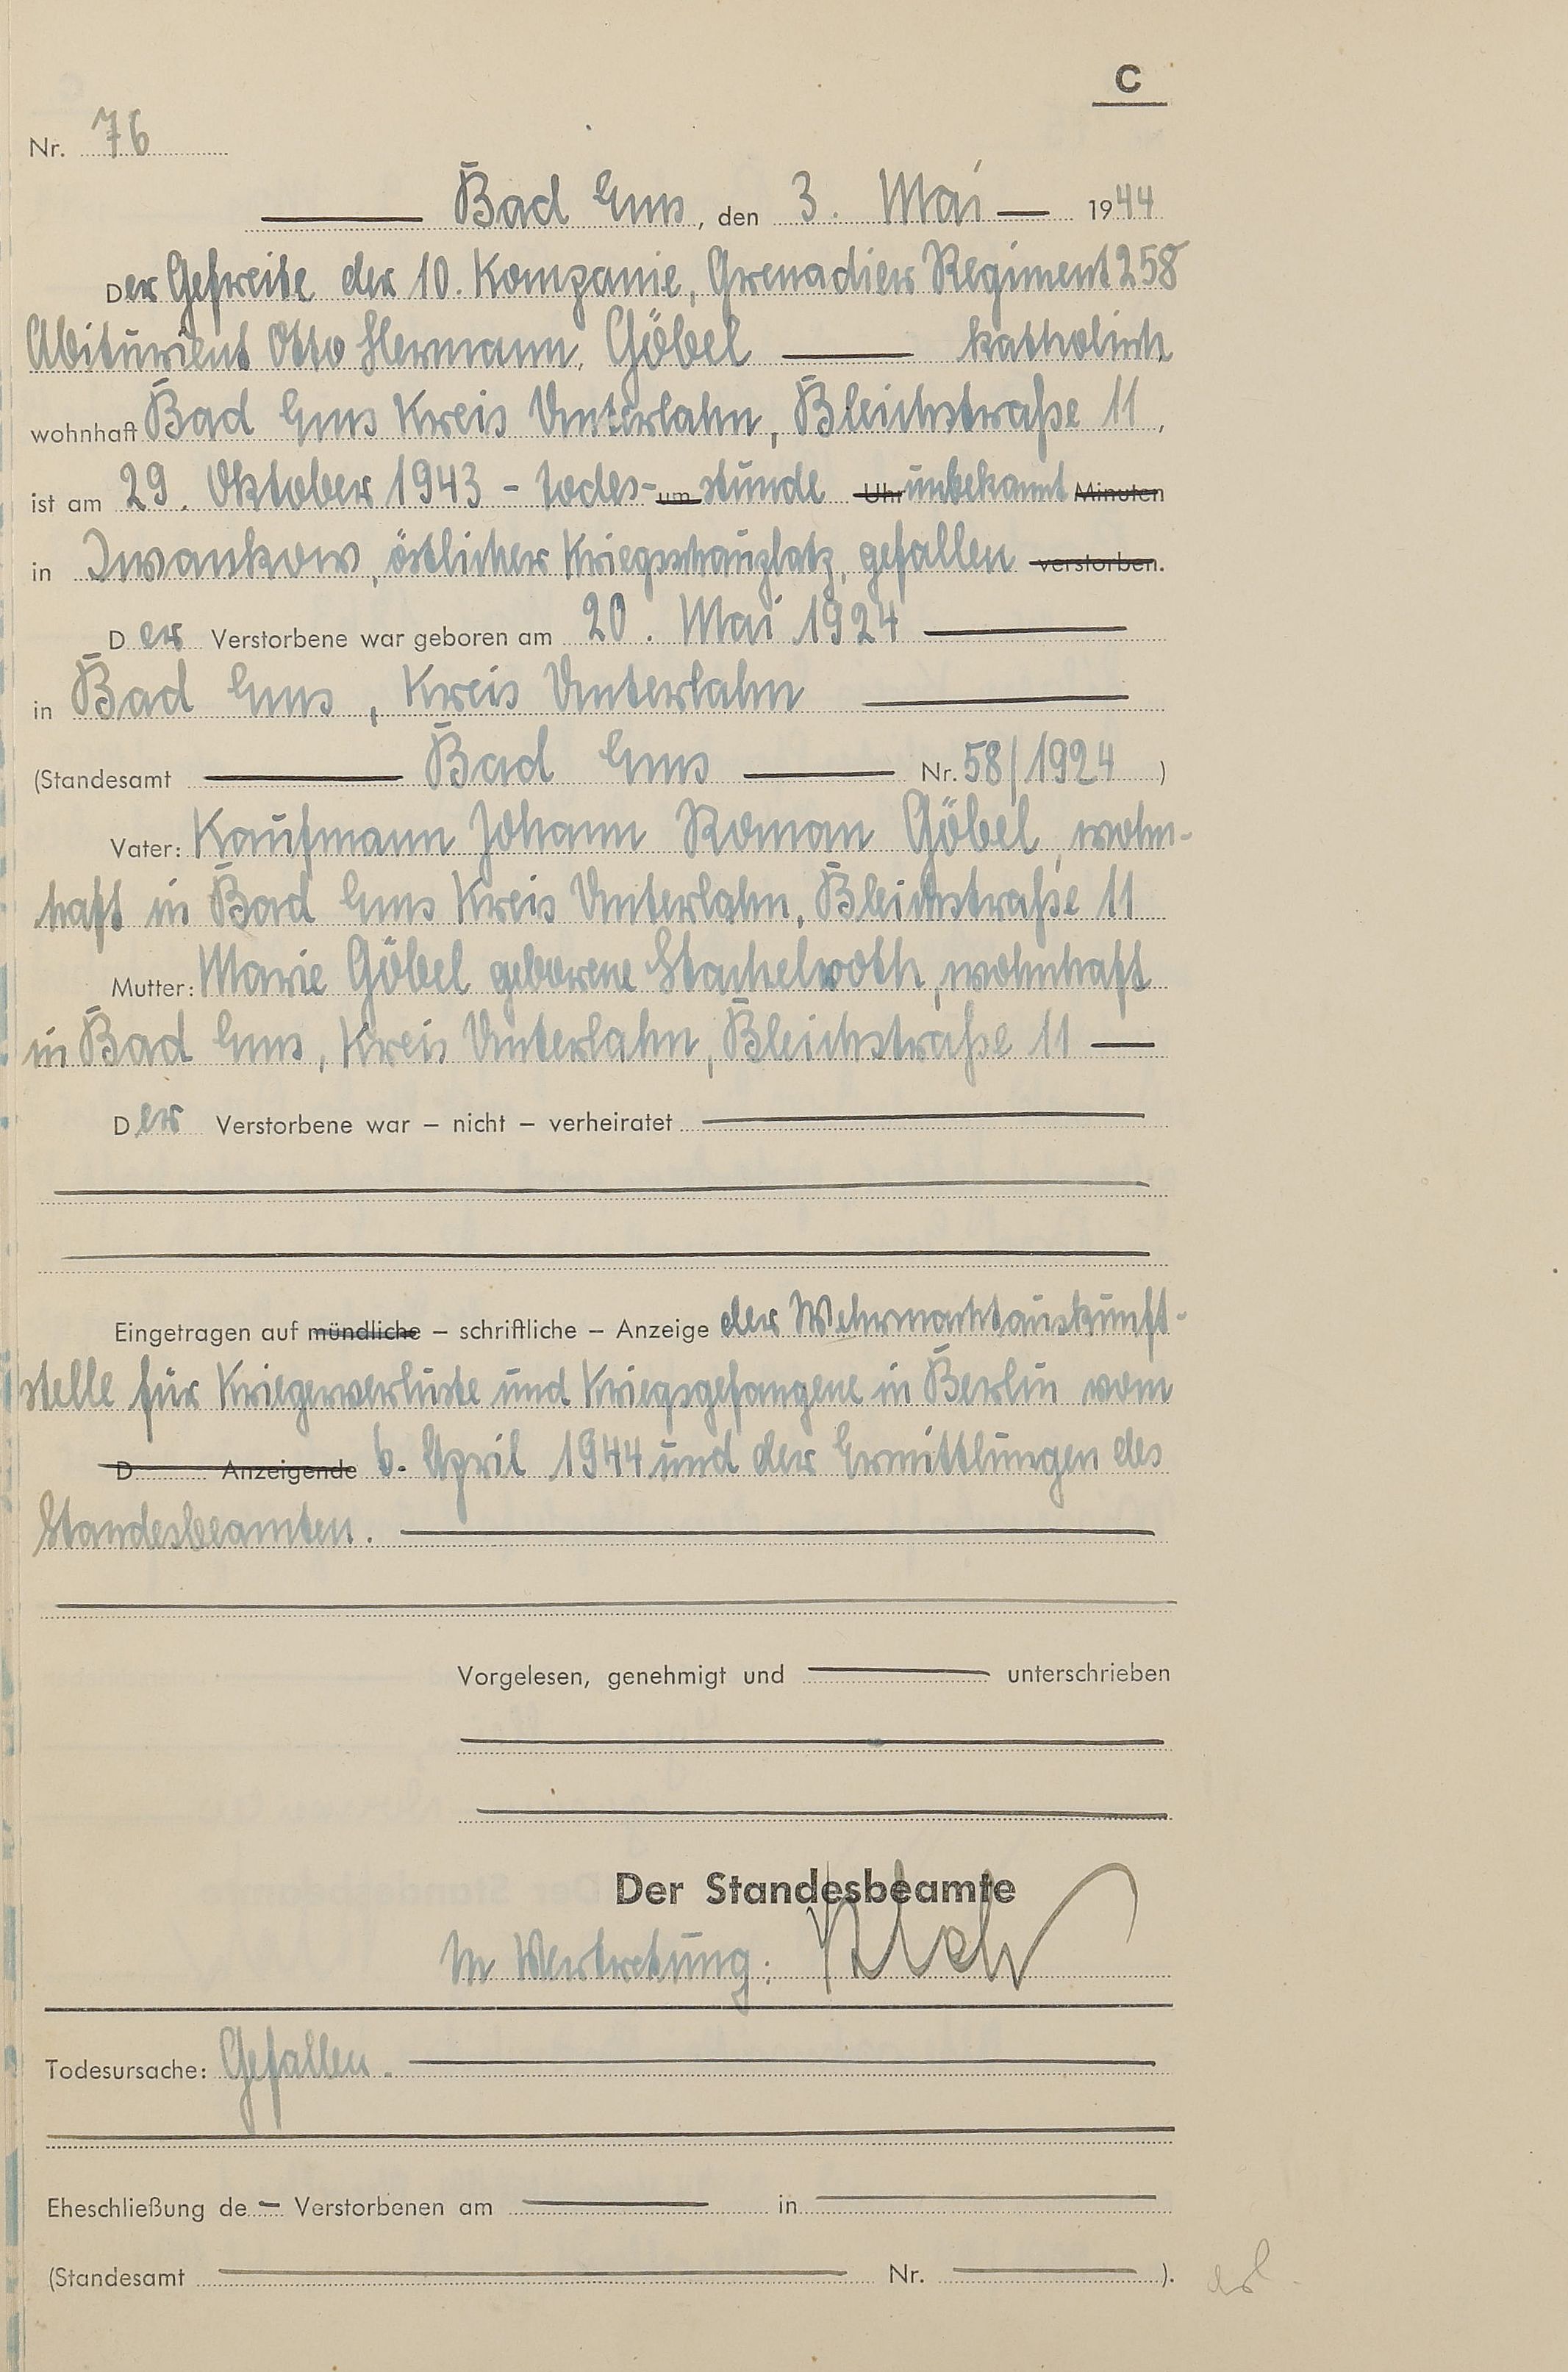 C
Nr. 76
Bad Ems, den 3. Mai 1944
Der Gefreite der 10. Kompanie, Grenadier Regiment 258
Abiturient Otto Hermann Göbel katholisch
wohnhaft Bad Ems Kreis Unterlahn, Bleichstraße 11,
ist am 29. Oktober 1943 - Todes- um stunde Uhr unbekannt Minuten
in Iwankow, östlicher Kriegsschauplatz, gefallen verstorben.
Der Verstorbene war geboren am 20. Mai 1924
in Bad Ems, Kreis Unterlahn
(Standesamt Bad Ems Nr. 58/1924 )
Vater: Kaufmann Johann Roman Göbel, wohn-
haft in Bad Ems Kreis Unterlahn, Bleichstraße 11
Mutter: Marie Göbel geborene Stachelroth, wohnhaft
in Bad Ems, Kreis Unterlahn, Bleichstraße 11
Der Verstorbene war – nicht – verheiratet
Eingetragen auf mündliche – schriftliche – Anzeige der Wehrmachtauskunft-
stelle für Kriegerverluste und Kriegsgefangene in Berlin vom
D Anzeigende 6. April 1944 und der Ermittlungen des
Standesbeamten.
Vorgelesen, genehmigt und unterschrieben
Der Standesbeamte
In Vertretung:
Todesursache: Gefallen.
Eheschließung de Verstorbenen am in
(Standesamt Nr. ).